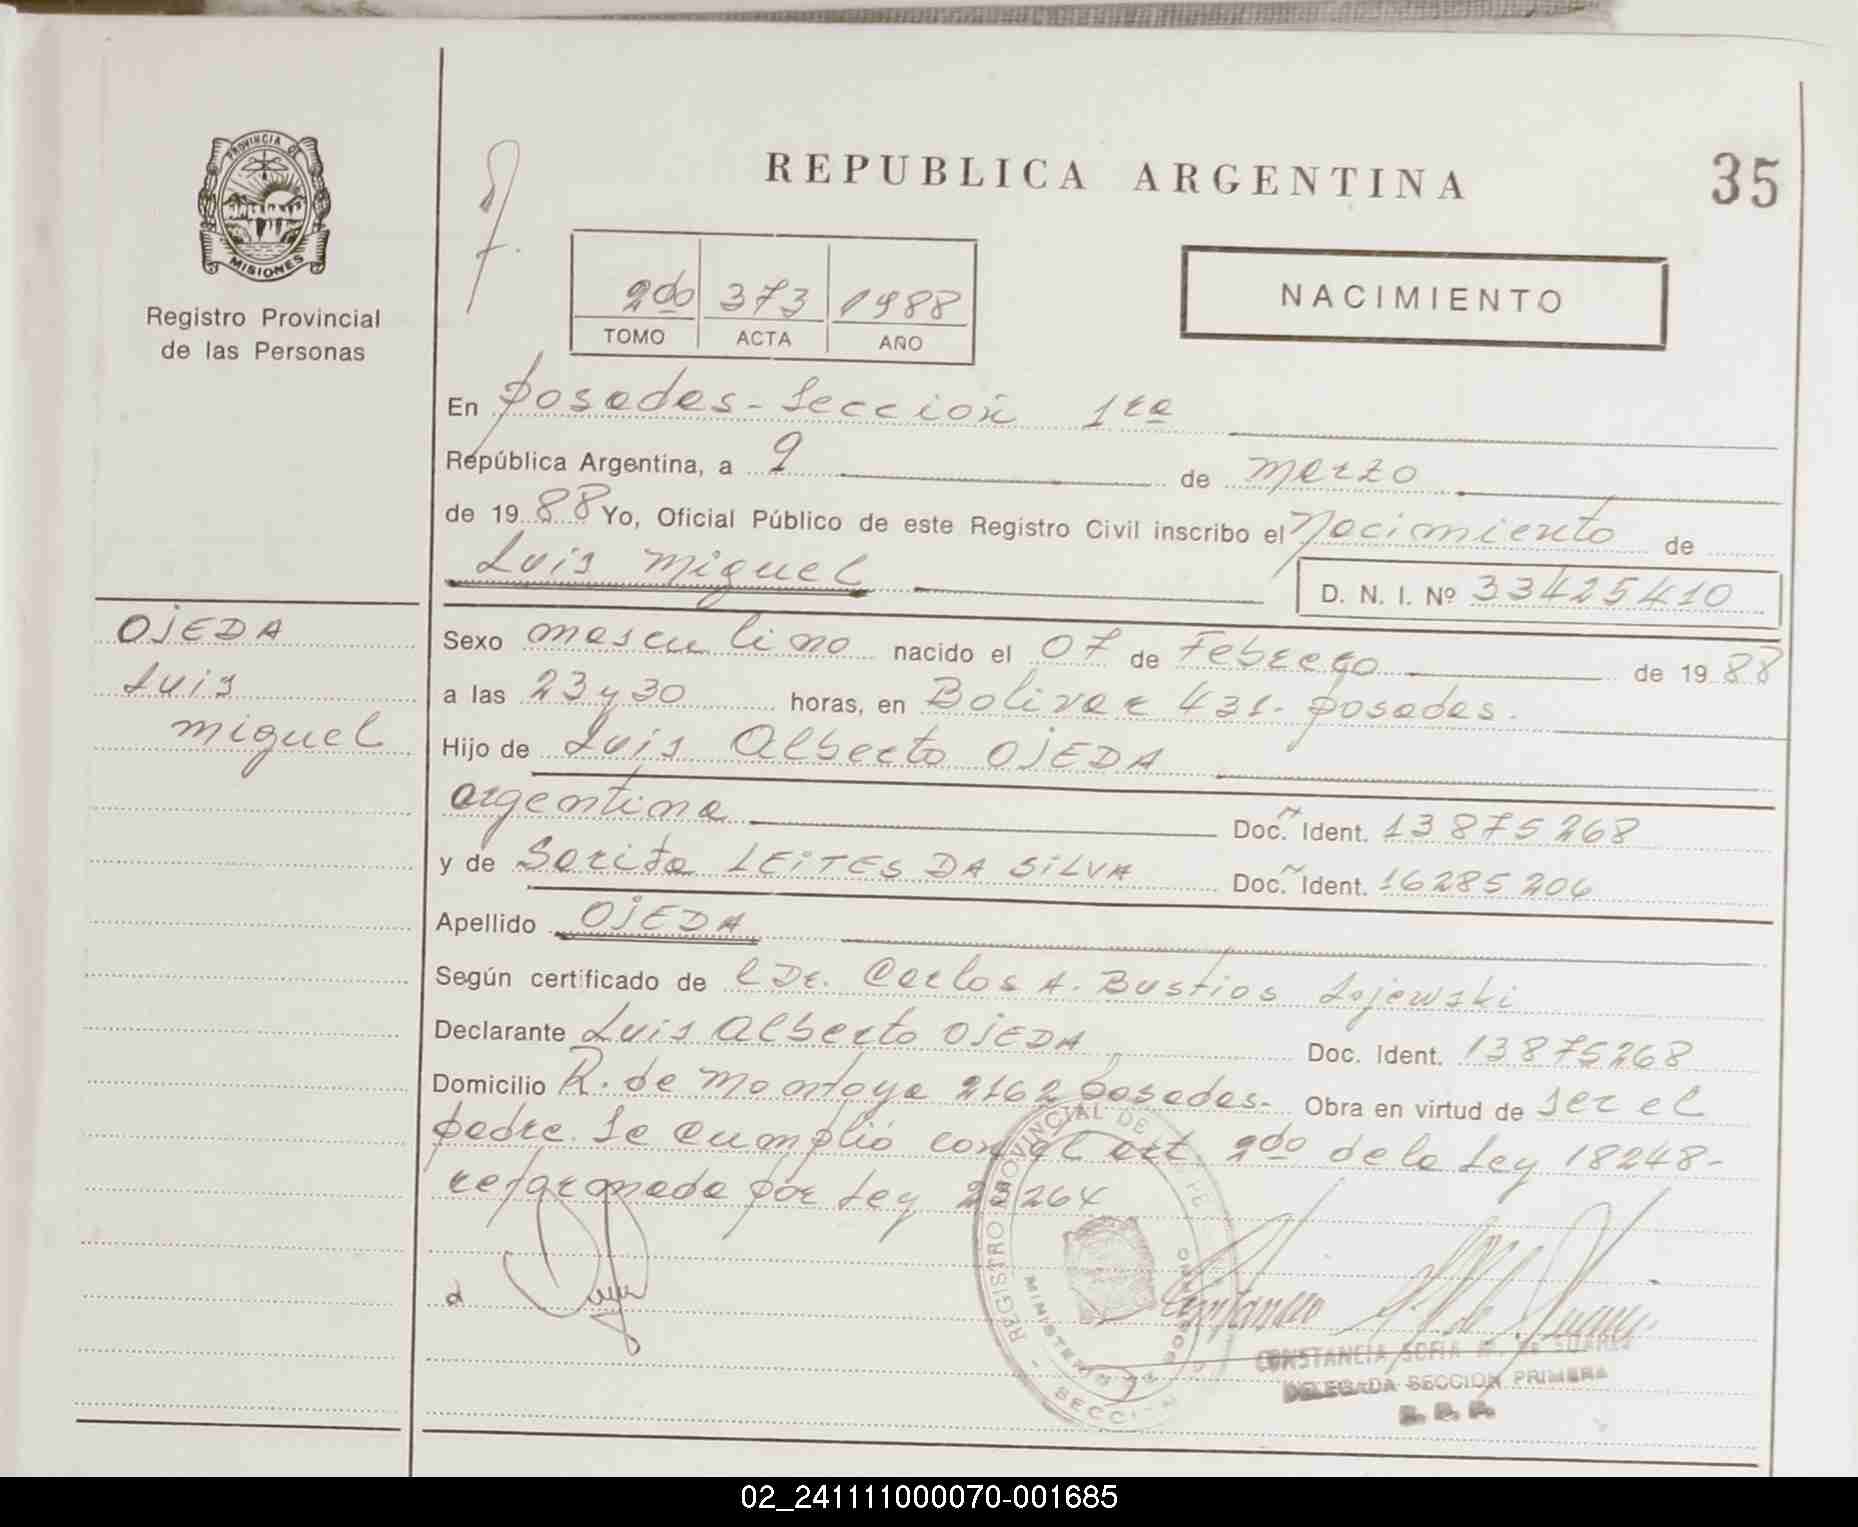 REPUBLICA ARGENTINA
35
PROVINCIA DE
MISIONES
Registro Provincial
de las Personas
2do 373 1988
TOMO ACTA AÑO
NACIMIENTO
En Posadas - Sección 1ra
República Argentina, a 9 de marzo
de 1988 Yo, Oficial Público de este Registro Civil inscribo el Nacimiento de
Luis Miguel D. N. I. Nº 33425410
OJEDA
Luis
Miguel
Sexo masculino nacido el 07 de Febrero de 1988
a las 23 y 30 horas, en Bolivar 431 - Posadas.
Hijo de Luis Alberto OJEDA
argentina Doc. Ident. 13875268
y de Sarita LEITES DA SILVA Doc. Ident. 16285206
Apellido OJEDA
Según certificado de l Dr. Carlos A. Bustios Lojewski
Declarante Luis Alberto OJEDA Doc. Ident. 13875268
Domicilio R. de Montoya 2162 Posadas - Obra en virtud de ser el
padre. Se cumplió con el art 2do de la Ley 18248 -
reformada por Ley 23264
REGISTRO PROVINCIAL DE
MINISTERIO
SECCION
CONSTANCIA SOFIA
DELEGADA SECCION PRIMERA
R. P. P.
02_241111000070-001685